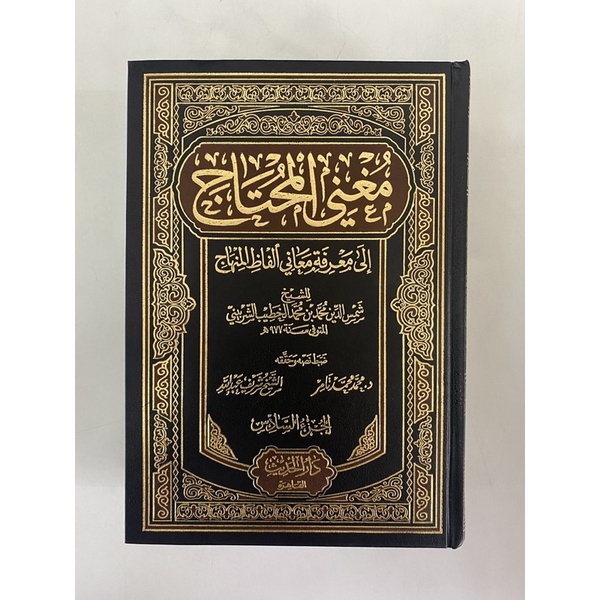 مُغْنِي المُحْتَاج
إلى مَعْرِفَةِ مَعَانِي ألفَاظِ المِنْهَاج
للشيخ
شمس الدين محمد بن محمد الخطيب الشربيني
المتوفى سنة ٩٧٧هـ
ضبط نصه وحققه
د. محمد محمد تامر
الشيخ شريف عبد الله
الجزء السادس
دار الحديث
القاهرة